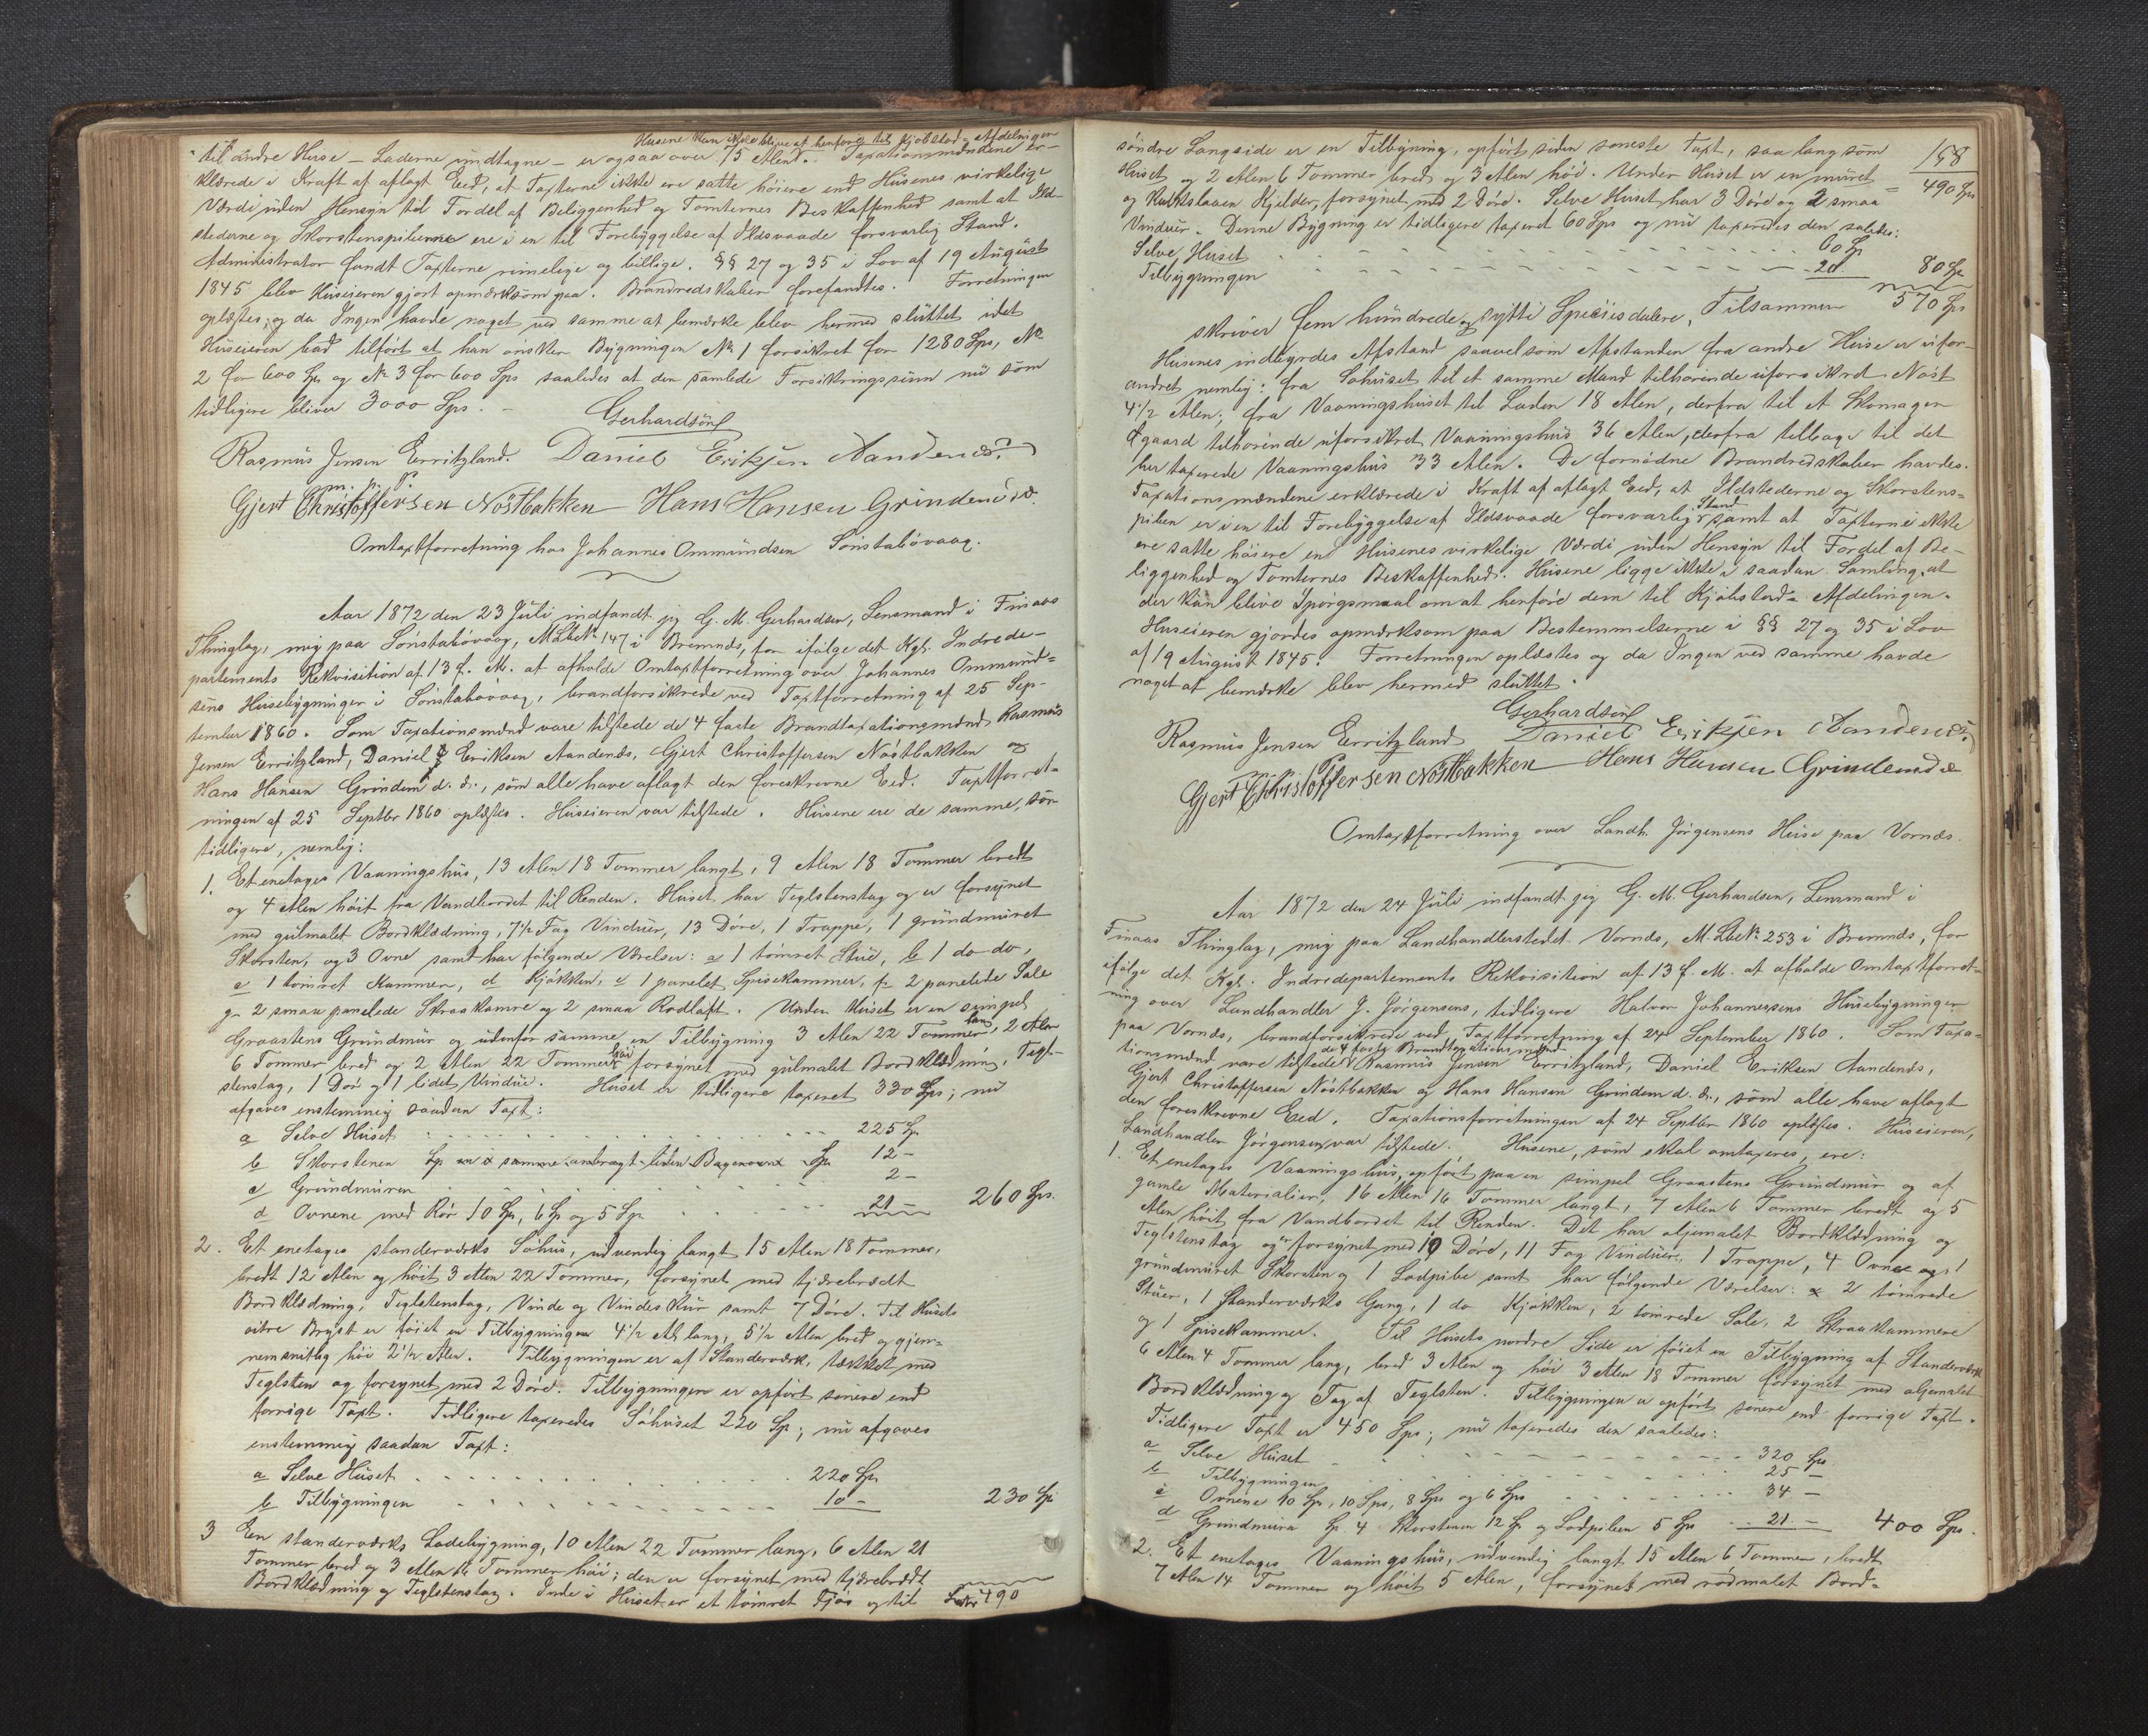 Husene kan ikke blive at henføres til Kjøbstad-Afdelingen
til andre Huse – Laderne undtagne – er ogsaa over 75 Alen. Taxationsmændene er-
klærede i Kraft af aflagt Eed, at Taxterne ikke ere satte høiere end Husenes virkelige
Værdi uden Hensyn til Fordel af Beliggenhed og Tomternes Beskaffenhed samt at Ild-
stederne og Skorstenspiberne ere i en til Forebyggelse af Ildsvaade forsvarlig Stand.
Administrator fandt Taxterne rimelige og billige. §§ 27 og 35 i Lov af 19 August
1845 blev Huseieren gjort opmærksom paa. Brandredskaber forefandtes. Forretningen
oplæstes; og da Ingen havde noget ved samme at bemærke blev hermed sluttet idet
Huseieren bad tilført at han ønsker Bygningen No 1 forsikret for 1280 Sps, No
2 for 600 Sps og No 3 for 600 Sps saaledes at den samlede Forsikringssum nu som
tidligere bliver 3000 Sps. –
Gerhardsen
Rasmus Jensen Erritzland. Daniel Eriksen Aandenes.
m. p. P.
Gjert Christoffersen Nøstbakken Hans Hansen Grindem d. d.
Omtaxtforretning hos Johannes Ommundsen Sønstabøvaag.
Aar 1872 den 23 Juli indfandt jeg G. M. Gerhardsen, Lensmand i Finaas
Thinglag, mig paa Sønstabøvaag, M.Lbe No 147 i Bremnæs, for ifølge det Kgl. Indrede-
partements Rekvisition af 13 f. M. at afholde Omtaxtforretning over Johannes Ommund-
sens Husebygninger i Sønstabøvaag, brandforsikrede ved Taxtforretning af 25 Sep-
tember 1860. Som Taxationsmænd vare tilstede de 4 faste Brandtaxationsmænd Rasmus
Jensen Erritzland, Daniel Eriksen Aandenæs, Gjert Christoffersen Nøstbakken og
Hans Hansen Grindem d. d., som alle have aflagt den foreskrevne Eed. Taxtforret-
ningen af 25 Septbr 1860 oplæstes. Huseieren var tilstede. Husene ere de samme, som
tidligere, nemlig:
1. Et enetages Vaaningshus, 13 Alen 18 Tommer langt, 9 Alen 18 Tommer bredt
og 4 Alen høit fra Vandbordet til Renden. Huset har Teglstenstag og er forsynet
med gulmalet Bordklædning, 7 1/2 Fag Vinduer, 13 Døre, 1 Trappe, 1 grundmuret
Skorsten, og 3 Ovne samt har følgende Værelser: a 1 tømret Stue, b 1 do do,
c 1 tømret Kammer, d Kjøkken, e 1 panelet Spisekammer, f 2 panelede Sale
g 2 smaa panelede Skraakamre og 2 smaa Rodloft. Under Huset er en simpel
Graastens Grundmur og udenfor samme en Tilbygning 3 Alen 22 Tommer lang, 2 Alen
6 Tommer bred og 2 Alen 22 Tommer høi forsynet med gulmalet Bordklædning, Tegl-
stenstag, 1 Dør og 1 lidet Vindue. Huset er tidligere taxeret 330 Sps; nu
afgaves enstemmig saadan Taxt:
a Selve Huset 225 Sp
b Skorstenen Sp en i samme anbragt liden Bagerovn Sp 12 –
c Grundmuren 2 –
d Ovnene med Rør 10 Sp, 6 Sp og 5 Sp 21 – 260 Sps.
2. Et enetages standerværks Søhus, udvendig langt 15 Alen 18 Tommer,
bredt 12 Alen og høit 3 Alen 22 Tommer, forsynet med tjærebrædt
Bordklædning, Teglstenstag, Vinde og Vindeskur samt 7 Døre. Til Husets
østre Bryst er føiet en Tilbygningen 4 1/2 Al lang, 5 1/2 Alen bred og gjen-
nemsnitlig høi 2 1/2 Alen. Tilbygningen er af Standerværk, tækket med
Teglsten og forsynet med 2 Døre. Tilbygningen er opført senere end
forrige Taxt. Tidligere taxeredes Søhuset 220 Sp; nu afgaves
enstemmig saadan Taxt:
a Selve Huset 220 Sp
b Tilbygningen 10 – 230 Sp
3 En standerværks Ladebygning, 10 Alen 22 Tommer lang, 6 Alen 21
Tommer bred og 3 Alen 16 Tommer høi; den er forsynet med tjærebrædt
Bordklædning og Teglstenstag. Inde i Huset er et tømret Fjøs og til Latus 490
158
søndre Langside er en Tilbygning, opført siden seneste Taxt, saa lang som
Huset og 2 Alen 6 Tommer bred og 3 Alen høi. Under Huset er en muret = 490 Sps
og kalkslaaen Kjelder, forsynet med 2 Døre. Selve Huset har 3 Døre og 2 smaa
Vinduer. Denne Bygning er tidligere taxeret 60 Sps og nu taxeredes den saaledes:
Selve Huset 60 Sp
Tilbygningen 20 80 Sp
570 Sps
skriver fem hundrede og sytti Speciesdalere, Tilsammen
Husenes indbyrdes Afstand saavelsom Afstanden fra andre Huse er ufor-
andret nemlig: fra Søhuset til et samme Mand tilhørende uforsikret Nøst
4 1/2 Alen; fra Vaaningshuset til Laden 18 Alen, derfra til et Skomager
Ågaard tilhørende uforsikret Vaaningshus 36 Alen, derfra tilbage til det
her taxerede Vaaningshus 33 Alen. De fornødne Brandredskaber havdes.
Taxationsmændene erklærede i Kraft af aflagt Eed, at Ildstederne og Skorstens-
piben er i en til Forebyggelse af Ildsvaade forsvarlig Stand samt at Taxterne ikke
ere satte høiere end Husenes virkelige Værdi uden Hensyn til Fordel af Be-
liggenhed og Tomternes Beskaffenhed. Husene ligge ikke i saadan Samling, at
der kan blive Spørgsmaal om at henføre dem til Kjøbstad-Afdelingen.
Huseieren gjordes opmærksom paa Bestemmelserne i §§ 27 og 35 i Lov
af 19 August 1845. Forretningen oplæstes og da Ingen ved samme havde
noget at bemærke blev hermed sluttet.
Gerhardsen
Rasmus Jensen Erritzland Daniel Eriksen Aandenes.
Gjert Christoffersen Nøstbakken Hans Hansen Grindem d. d.
Omtaxtforretning over Landh. Jørgensens Huse paa Vornæs.
Aar 1872 den 24 Juli indfandt jeg G. M. Gerhardsen, Lensmand i
Finaas Thinglag, mig paa Landhandlerstedet Vornæs, M.Lbe No 253 i Bremnæs, for
ifølge det Kgl. Indredepartements Rekvisition af 13 f. M. at afholde Omtaxtforret-
ning over Landhandler J. Jørgensens, tidligere Halvor Johannessens Husebygninger
paa Vornæs, brandforsikrede ved Taxtforretning af 24 September 1860. Som Taxa-
tionsmænd vare tilstede de 4 faste Brandtaxationsmænd Rasmus Jensen Erritzland, Daniel Eriksen Aandenæs,
Gjert Christoffersen Nøstbakken og Hans Hansen Grindem d. d., som alle have aflagt
den foreskrevne Eed. Taxationsforretningen af 24 Septbr 1860 oplæstes. Huseieren,
Landhandler Jørgensen, var tilstede. Husene, som skal omtaxeres, ere:
1. Et enetages Vaaningshus, opført paa en simpel Graastens Grundmur og af
gamle Materialier, 16 Alen 16 Tommer langt, 7 Alen 6 Tommer bredt og 5
Alen høit fra Vandbordet til Renden. Det har oljemalet Bordklædning og
Teglstenstag og er forsynet med 10 Døre, 11 Fag Vinduer, 1 Trappe, 4 Ovne og 1
grundmuret Skorsten og 1 Lodpibe samt har følgende Værelser: 2 tømrede
Stuer, 1 Standerværks Gang, 1 do Kjøkken, 2 tømrede Sale, 2 Skraakammere
og 1 Spisekammer. Til Husets nordre Side er føiet en Tilbygning af Standerværk
6 Alen 4 Tommer lang, bred 3 Alen og høi 3 Alen 18 Tommer forsynet med oljemalet
Bordklædning og Tag af Teglsten. Tilbygningen er opført senere end forrige Taxt.
Tidligere Taxt er 450 Sps; nu taxeredes den saaledes:
a Selve Huset 320 Sps
b Tilbygningen 25 –
c Ovnene 10 Sp, 10 Sps, 8 Sps og 6 Sps 34 –
d Grundmuren Sp 4 Skorstenen 12 Sp og Lodpiben 5 Sps 21 – 400 Sps.
2. Et enetages Vaaningshus, udvendig langt 15 Alen 6 Tommer, bredt
7 Alen 14 Tommer og høit 5 Alen, forsynet med rødmalet Bord-